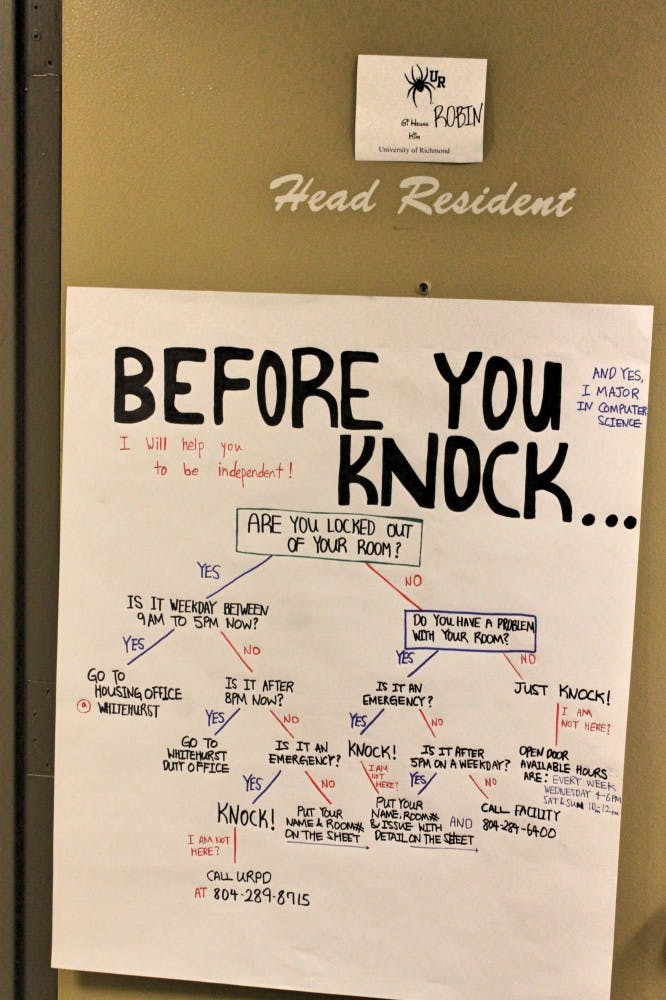 UR
ROBIN
Kim
University of Richmond
Head Resident
BEFORE YOU
KNOCK...
AND YES,
I MAJOR
IN COMPUTER
SCIENCE
I Will help you
to be independent!
ARE YOU LOCKED OUT
OF YOUR ROOM?
YES
NO
IS IT WEEKDAY BETWEEN
9AM TO 5PM NOW?
DO YOU HAVE A PROBLEM
WITH YOUR ROOM?
YES
NO
YES
NO
GO TO
HOUSING OFFICE
@ WHITEHURST
IS IT AFTER
8PM NOW?
IS IT AN
EMERGENCY?
JUST KNOCK!
I AM
NOT HERE?
YES
NO
YES
NO
GO TO
WHITEHURST
DUTY OFFICE
IS IT AN
EMERGENCY?
KNOCK!
I AM
NOT
HERE?
IS IT AFTER
5PM ON A WEEKDAY?
OPEN DOOR
AVAILABLE HOURS
ARE: EVERY WEEK
WEDNESDAY 4-6PM
SAT & SUN 10-12pm
YES
NO
YES
NO
KNOCK!
PUT YOUR
NAME & ROOM#
ON THE SHEET
PUT YOUR
NAME, ROOM#
& ISSUE WITH
DETAIL ON THE SHEET
AND
CALL FACILITY
804-289-6400
I AM NOT
HERE?
CALL URPD
AT 804-289-8715